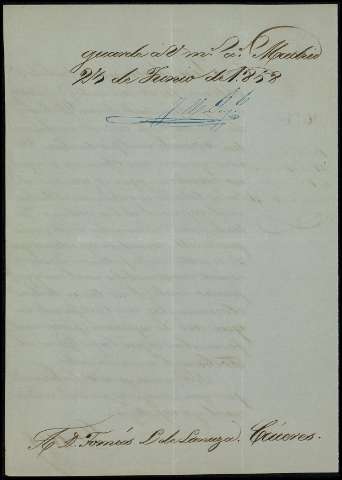 guarde a V. m.s a.s Madrid
24 de Junio de 1858
A D. Tomás L. de Lanuza. Cáceres.